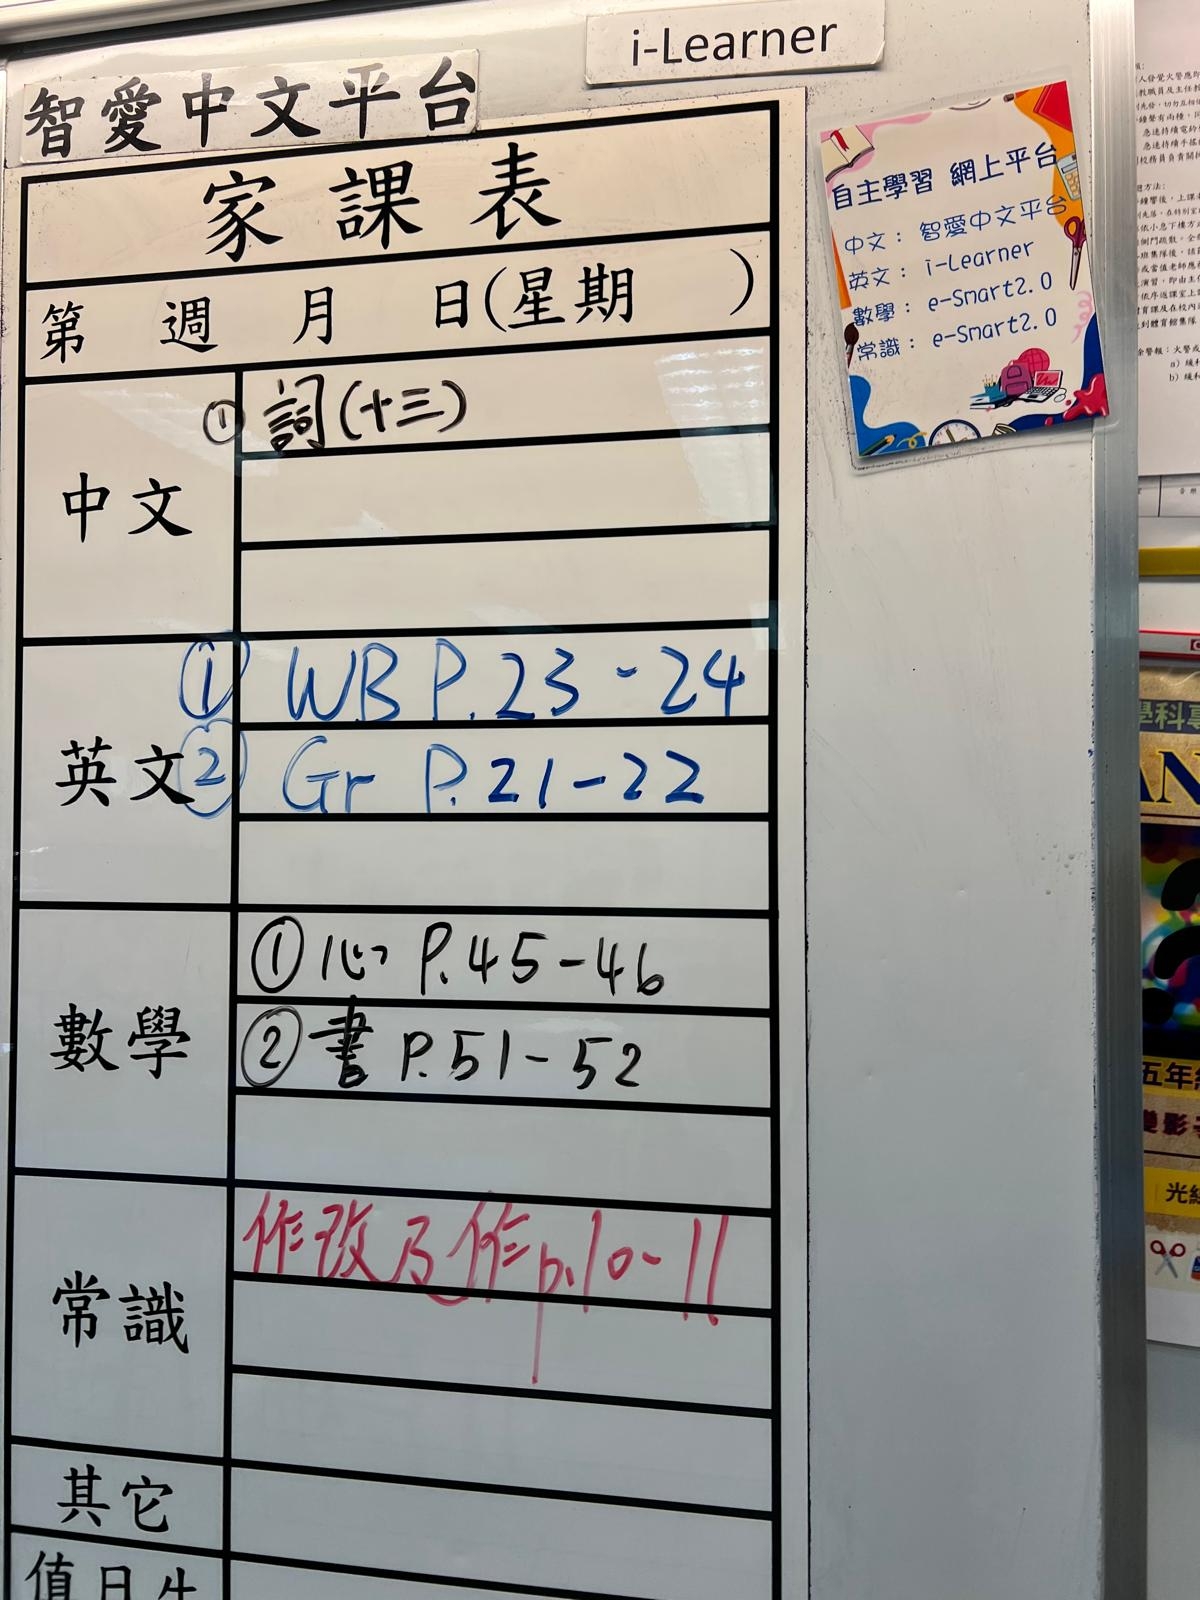 i-Learner
智愛中文平台
家課表
第 週 月 日(星期 )
中文
① 詞(十三)
英文
① WB P.23-24
② Gr P.21-22
數學
① 心 P.45-46
② 書 P.51-52
常識
作改及作p.10-11
其它
值日生
自主學習 網上平台
中文： 智愛中文平台
英文： i-Learner
數學： e-Smart2.0
常識： e-Smart2.0
學科
AN
五年
變影